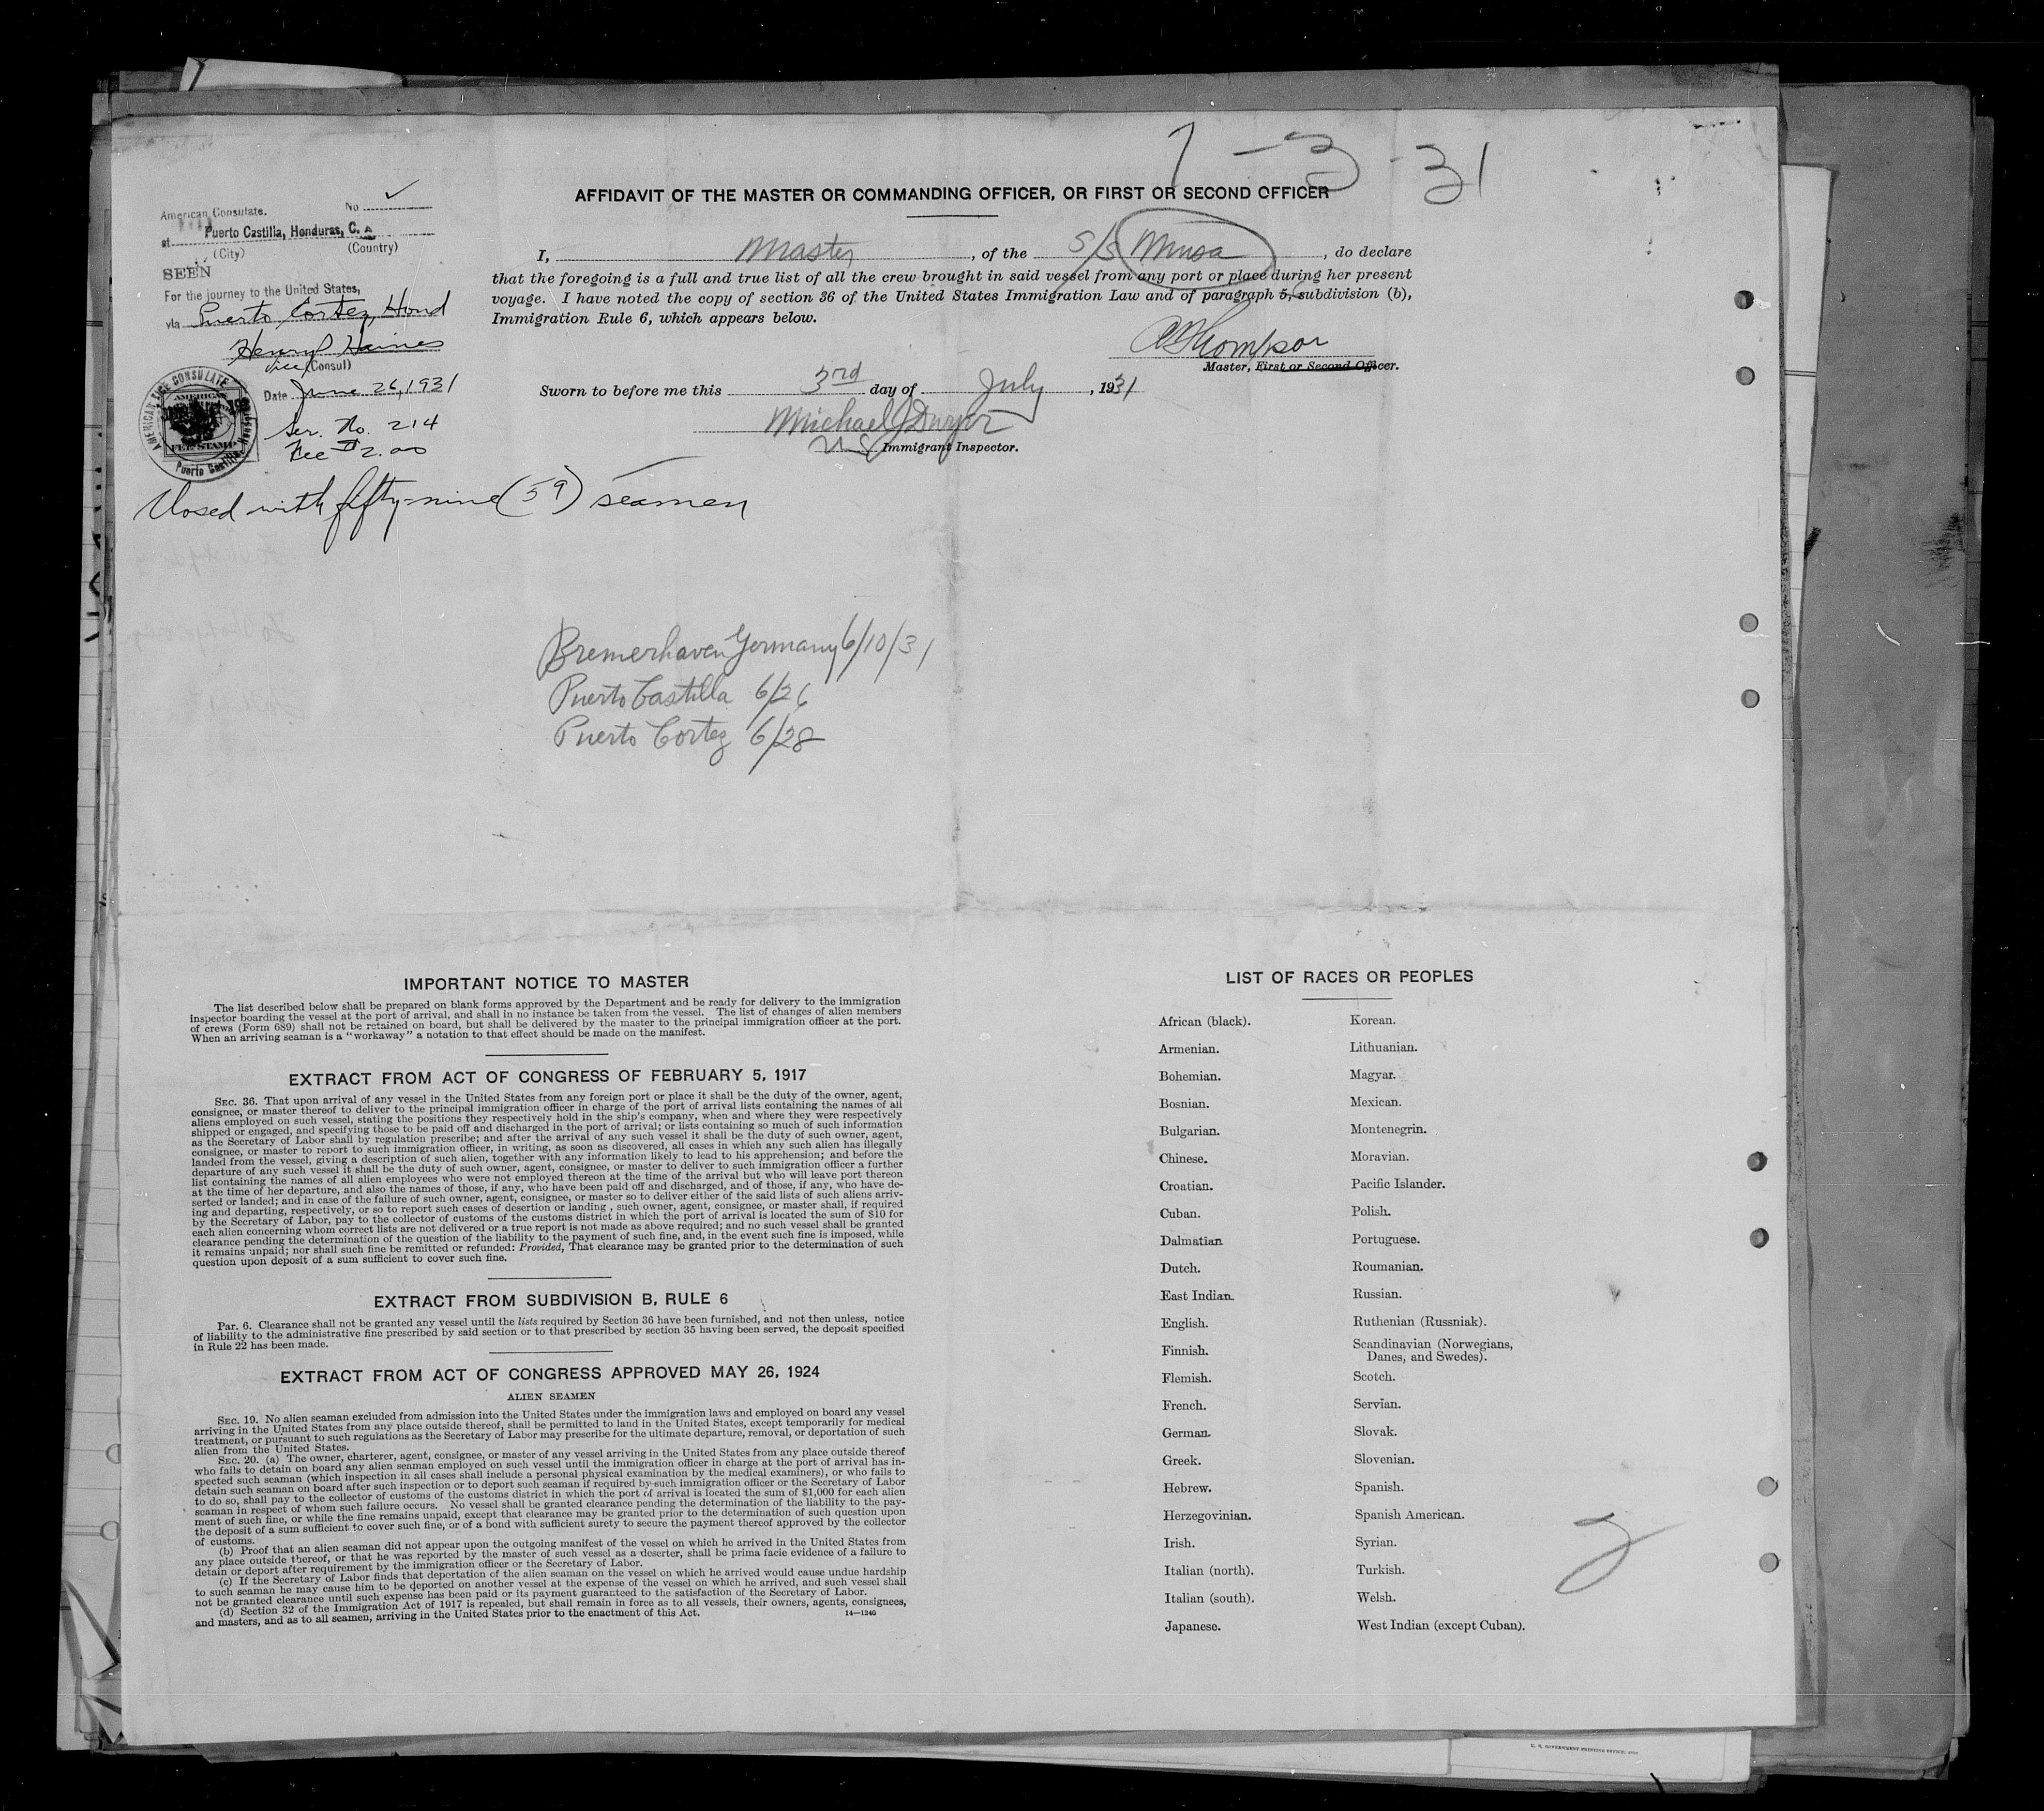 7-3-31
AFFIDAVIT OF THE MASTER OR COMMANDING OFFICER, OR FIRST OR SECOND OFFICER
American Consulate. No ✓
at Puerto Castilla, Honduras, C. A.
(City) (Country)
SEEN
For the journey to the United States,
via Puerto Cortez, Hond
Henry Haines
Vice (Consul)
Date June 26, 1931
Ser. No. 214
Fee $2.00
AMERICAN CONSULATE
AMERICAN
FEE STAMP
Puerto Castilla
Closed with fifty-nine (59) seamen
I, Master, of the S/S Musa, do declare
that the foregoing is a full and true list of all the crew brought in said vessel from any port or place during her present
voyage. I have noted the copy of section 36 of the United States Immigration Law and of paragraph 5, subdivision (b),
Immigration Rule 6, which appears below.
Thompson
Master, First or Second Officer.
Sworn to before me this 3rd day of July, 1931
Michael J Dwyer
U S Immigrant Inspector.
Bremerhaven Germany 6/10/31
Puerto Castilla 6/26
Puerto Cortez 6/28
IMPORTANT NOTICE TO MASTER
The list described below shall be prepared on blank forms approved by the Department and be ready for delivery to the immigration
inspector boarding the vessel at the port of arrival, and shall in no instance be taken from the vessel. The list of changes of alien members
of crews (Form 689) shall not be retained on board, but shall be delivered by the master to the principal immigration officer at the port.
When an arriving seaman is a "workaway" a notation to that effect should be made on the manifest.
EXTRACT FROM ACT OF CONGRESS OF FEBRUARY 5, 1917
SEC. 36. That upon arrival of any vessel in the United States from any foreign port or place it shall be the duty of the owner, agent,
consignee, or master thereof to deliver to the principal immigration officer in charge of the port of arrival lists containing the names of all
aliens employed on such vessel, stating the positions they respectively hold in the ship's company, when and where they were respectively
shipped or engaged, and specifying those to be paid off and discharged in the port of arrival; or lists containing so much of such information
as the Secretary of Labor shall by regulation prescribe; and after the arrival of any such vessel it shall be the duty of such owner, agent,
consignee, or master to report to such immigration officer, in writing, as soon as discovered, all cases in which any such alien has illegally
landed from the vessel, giving a description of such alien, together with any information likely to lead to his apprehension; and before the
departure of any such vessel it shall be the duty of such owner, agent, consignee, or master to deliver to such immigration officer a further
list containing the names of all alien employees who were not employed thereon at the time of the arrival but who will leave port thereon
at the time of her departure, and also the names of those, if any, who have been paid off and discharged, and of those, if any, who have de-
serted or landed; and in case of the failure of such owner, agent, consignee, or master so to deliver either of the said lists of such aliens arriv-
ing and departing, respectively, or so to report such cases of desertion or landing , such owner, agent, consignee, or master shall, if required
by the Secretary of Labor, pay to the collector of customs of the customs district in which the port of arrival is located the sum of $10 for
each alien concerning whom correct lists are not delivered or a true report is not made as above required; and no such vessel shall be granted
clearance pending the determination of the question of the liability to the payment of such fine, and, in the event such fine is imposed, while
it remains unpaid; nor shall such fine be remitted or refunded: Provided, That clearance may be granted prior to the determination of such
question upon deposit of a sum sufficient to cover such fine.
EXTRACT FROM SUBDIVISION B, RULE 6
Par. 6. Clearance shall not be granted any vessel until the lists required by Section 36 have been furnished, and not then unless, notice
of liability to the administrative fine prescribed by said section or to that prescribed by section 35 having been served, the deposit specified
in Rule 22 has been made.
EXTRACT FROM ACT OF CONGRESS APPROVED MAY 26, 1924
ALIEN SEAMEN
SEC. 19. No alien seaman excluded from admission into the United States under the immigration laws and employed on board any vessel
arriving in the United States from any place outside thereof, shall be permitted to land in the United States, except temporarily for medical
treatment, or pursuant to such regulations as the Secretary of Labor may prescribe for the ultimate departure, removal, or deportation of such
alien from the United States.
SEC. 20. (a) The owner, charterer, agent, consignee, or master of any vessel arriving in the United States from any place outside thereof
who fails to detain on board any alien seaman employed on such vessel until the immigration officer in charge at the port of arrival has in-
spected such seaman (which inspection in all cases shall include a personal physical examination by the medical examiners), or who fails to
detain such seaman on board after such inspection or to deport such seaman if required by such immigration officer or the Secretary of Labor
to do so, shall pay to the collector of customs of the customs district in which the port of arrival is located the sum of $1,000 for each alien
seaman in respect of whom such failure occurs. No vessel shall be granted clearance pending the determination of the liability to the pay-
ment of such fine, or while the fine remains unpaid, except that clearance may be granted prior to the determination of such question upon
the deposit of a sum sufficient to cover such fine, or of a bond with sufficient surety to secure the payment thereof approved by the collector
of customs.
(b) Proof that an alien seaman did not appear upon the outgoing manifest of the vessel on which he arrived in the United States from
any place outside thereof, or that he was reported by the master of such vessel as a deserter, shall be prima facie evidence of a failure to
detain or deport after requirement by the immigration officer or the Secretary of Labor.
(c) If the Secretary of Labor finds that deportation of the alien seaman on the vessel on which he arrived would cause undue hardship
to such seaman he may cause him to be deported on another vessel at the expense of the vessel on which he arrived, and such vessel shall
not be granted clearance until such expense has been paid or its payment guaranteed to the satisfaction of the Secretary of Labor.
(d) Section 32 of the Immigration Act of 1917 is repealed, but shall remain in force as to all vessels, their owners, agents, consignees,
and masters, and as to all seamen, arriving in the United States prior to the enactment of this Act. 14—1240
LIST OF RACES OR PEOPLES
African (black). Korean.
Armenian. Lithuanian.
Bohemian. Magyar.
Bosnian. Mexican.
Bulgarian. Montenegrin.
Chinese. Moravian.
Croatian. Pacific Islander.
Cuban. Polish.
Dalmatian Portuguese.
Dutch. Roumanian.
East Indian. Russian.
English. Ruthenian (Russniak).
Finnish. Scandinavian (Norwegians,
Danes, and Swedes).
Flemish. Scotch.
French. Servian.
German. Slovak.
Greek. Slovenian.
Hebrew. Spanish.
Herzegovinian. Spanish American.
Irish. Syrian.
Italian (north). Turkish.
Italian (south). Welsh.
Japanese. West Indian (except Cuban).
U. S. GOVERNMENT PRINTING OFFICE: